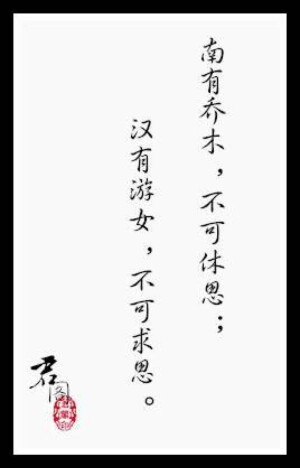 南有乔木，不可休思；
汉有游女，不可求思。
君阁